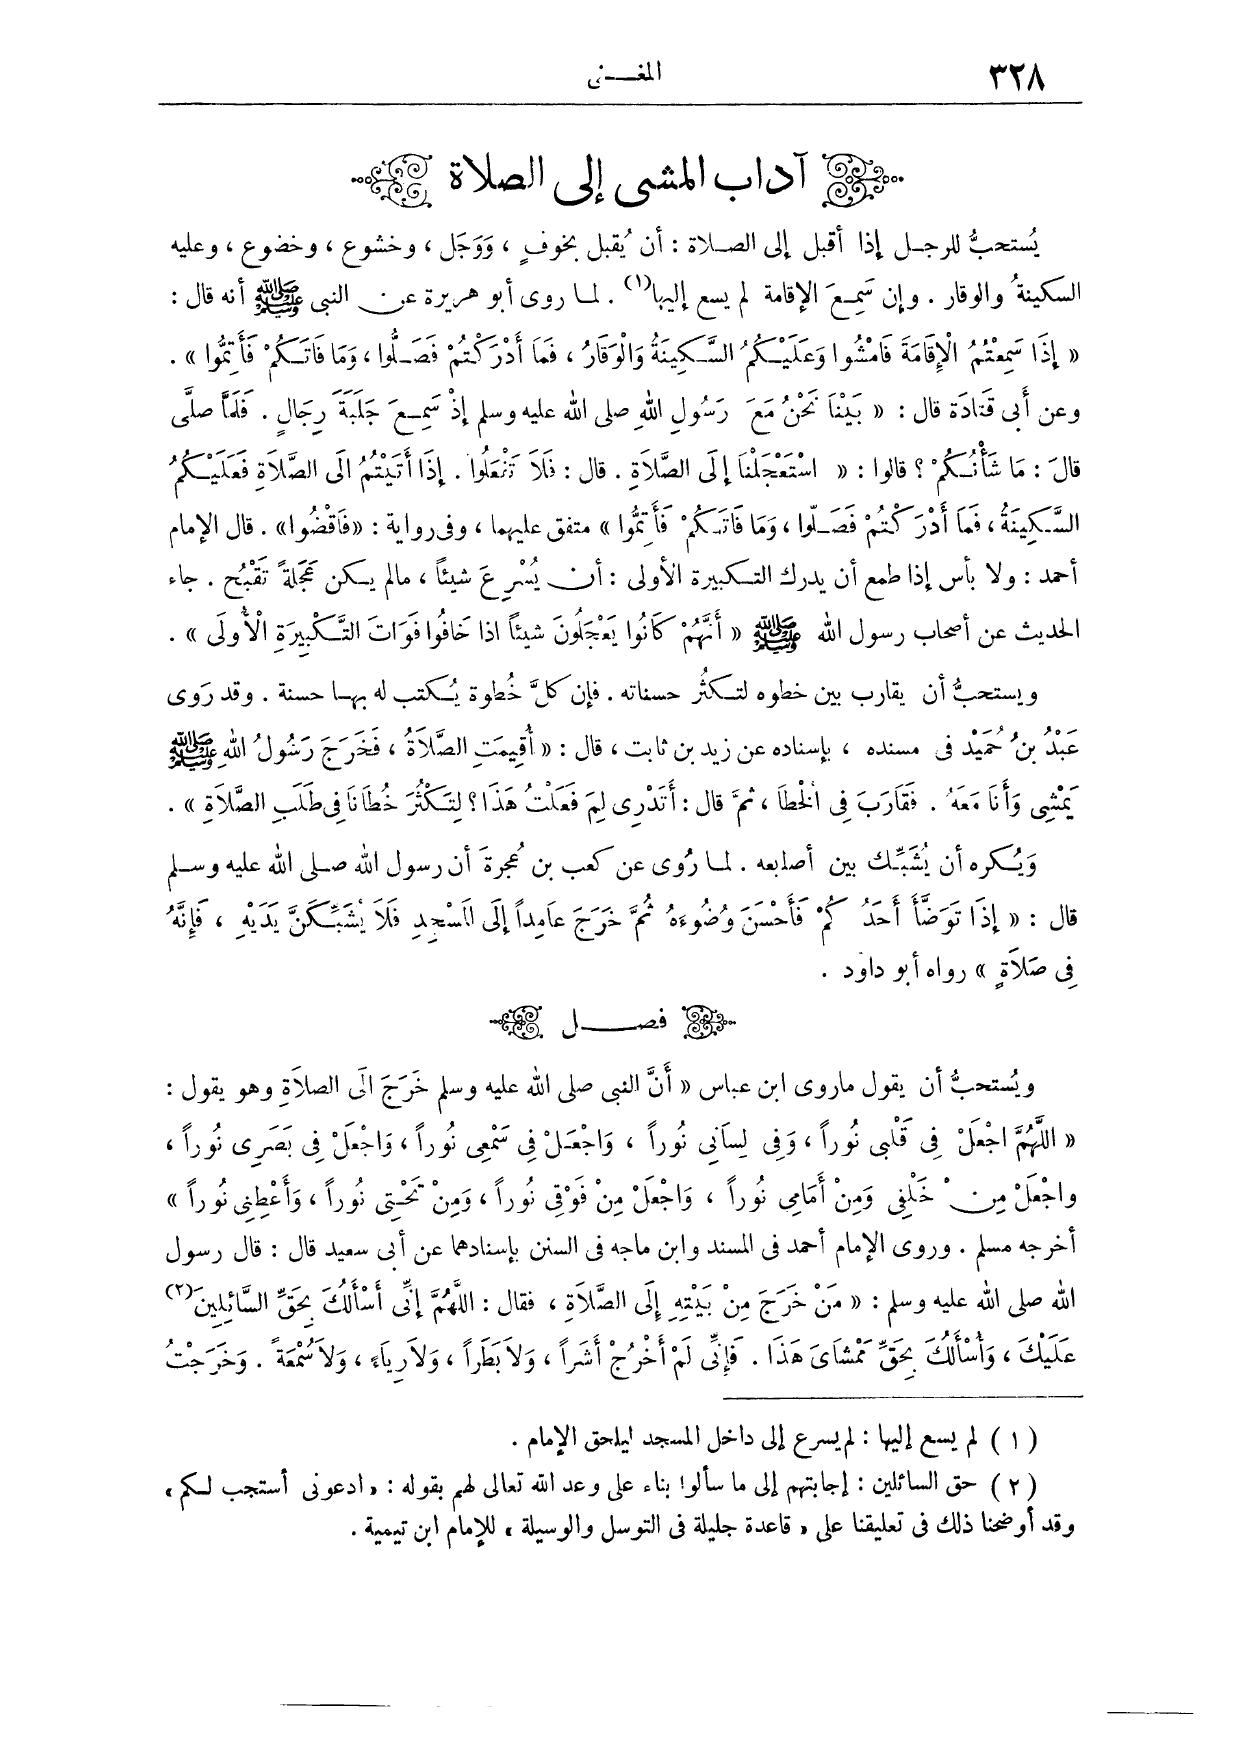 ٣٢٨
المغــنى
آداب المشى إلى الصلاة
يُستحبُّ للرجل إذا أقبل إلى الصلاة : أن يُقبل بخوفٍ ، وَوَجَل ، وخشوع ، وخضوع ، وعليه
السكينةُ والوقار . وإن سَمِعَ الإقامة لم يسع إليها(١) . لما روى أبو هريرة عن النبى ﷺ أنه قال :
« إِذَا سَمِعْتُمُ الْإِقَامَةَ فَامْشُوا وَعَلَيْكُمُ السَّكِينَةُ وَالْوَقَارُ ، فَمَا أَدْرَكْتُمْ فَصَلُّوا ، وَمَا فَاتَكُمْ فَأَتِمُّوا » .
وعن أبى قَتادَة قال : « بَيْنَا نَحْنُ مَعَ رَسُولِ اللهِ صلى الله عليه وسلم إِذْ سَمِعَ جَلَبَةَ رِجَالٍ . فَلَمَّا صلَّى
قالَ : مَا شَأْنُكُمْ ؟ قالوا : « اسْتَعْجَلْنَا إِلَى الصَّلَاةِ . قال : فَلَا تَفْعَلُوا . إِذَا أَتَيْتُمُ الَى الصَّلَاةِ فَعَلَيْكُمُ
السَّكِينَةُ ، فَمَا أَدْرَكْتُمْ فَصَلّوا ، وَمَا فَاتَكُمْ فَأَتِمُّوا » متفق عليهما ، وفى رواية : «فَاقْضُوا» . قال الإمام
أحمد : ولا بأس إذا طمع أن يدرك التكبيرة الأولى : أن يُسْرِعَ شيئاً ، مالم يكن عَجَلةً تَقْبُح . جاء
الحديث عن أصحاب رسول الله ﷺ « أَنَّهُمْ كَانُوا يَعْجَلُونَ شيئاً اذا خَافُوا فَوَاتَ التَّكْبِيرَةِ الْأُولَى » .
ويستحبُّ أن يقارب بين خطوه لتكثُر حسناته . فإن كلَّ خُطوة يُكتب له بها حسنة . وقد رَوى
عَبْدُ بنُ حُمَيْد فى مسنده ، بإسناده عن زيد بن ثابت ، قال : « أُقِيمَتِ الصَّلَاةُ ، فَخَرَجَ رَسُولُ اللهِ ﷺ
يَمْشِى وَأَنَا مَعَهُ . فَقَارَبَ فِى الْخُطَا ، ثمَّ قال : أَتَدْرِى لِمَ فَعَلْتُ هَذَا ؟ لِتَكْثُرَ خُطَانَا فِى طَلَبِ الصَّلَاةِ » .
وَيُكره أن يُشَبِّك بين أصابعه . لما رُوى عن كعب بن عُجرةَ أن رسول الله صلى الله عليه وسلم
قال : « إِذَا تَوَضَّأَ أَحَدُكُمْ فَأَحْسَنَ وُضُوءَهُ ثُمَّ خَرَجَ عَامِداً إِلَى الْمَسْجِدِ فَلَا يُشَبِّكَنَّ يَدَيْهِ ، فَإِنَّهُ
فِى صَلَاةٍ » رواه أبو داود .
فصــل
ويُستحبُّ أن يقول ماروى ابن عباس « أَنَّ النبى صلى الله عليه وسلم خَرَجَ الَى الصلَاةِ وهو يقول :
« اللَّهُمَّ اجْعَلْ فِى قَلْبى نُوراً ، وَفِى لِسَانِى نُوراً ، وَاجْعَلْ فِى سَمْعِى نُوراً ، وَاجْعَلْ فِى بَصَرِى نُوراً ،
واجْعَلْ مِنْ خَلْفِى وَمِنْ أَمَامِى نُوراً ، وَاجْعَلْ مِنْ فَوْقِى نُوراً ، وَمِنْ تَحْتِى نُوراً ، وَأَعْطِنِى نُوراً »
أخرجه مسلم . وروى الإمام أحمد فى المسند وابن ماجه فى السنن بإسنادهما عن أبى سعيد قال : قال رسول
الله صلى الله عليه وسلم : « مَنْ خَرَجَ مِنْ بَيْتِهِ إِلَى الصَّلَاةِ ، فقال : اللَّهُمَّ إِنِّى أَسْأَلُكَ بِحَقِّ السَّائِلِينَ(٢)
عَلَيْكَ ، وَأَسْأَلُكَ بِحَقِّ مَمْشَاىَ هَذَا . فَإِنِّى لَمْ أَخْرُجْ أَشَراً ، وَلَا بَطَراً ، وَلَا رِيَاءً ، وَلَا سُمْعَةً . وَخَرَجْتُ
( ١ ) لم يسع إليها : لم يسرع إلى داخل المسجد ليلحق الإمام .
( ٢ ) حق السائلين : إجابتهم إلى ما سألوا بناء على وعد الله تعالى لهم بقوله : « ادعونى أستجب لكم »
وقد أوضحنا ذلك فى تعليقنا على « قاعدة جليلة فى التوسل والوسيلة » للإمام ابن تيمية .